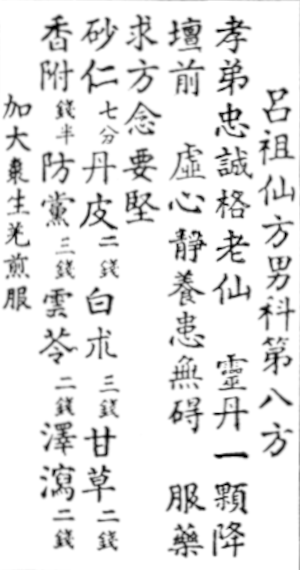 呂祖仙方男科第八方
孝弟忠誠格老仙　靈丹一顆降
壇前　虛心靜養患無碍　服藥
求方念要堅
砂仁七分丹皮二錢白朮三錢甘草二錢
香附錢半防黨三錢雲苓二錢澤瀉二錢
加大棗生羌煎服